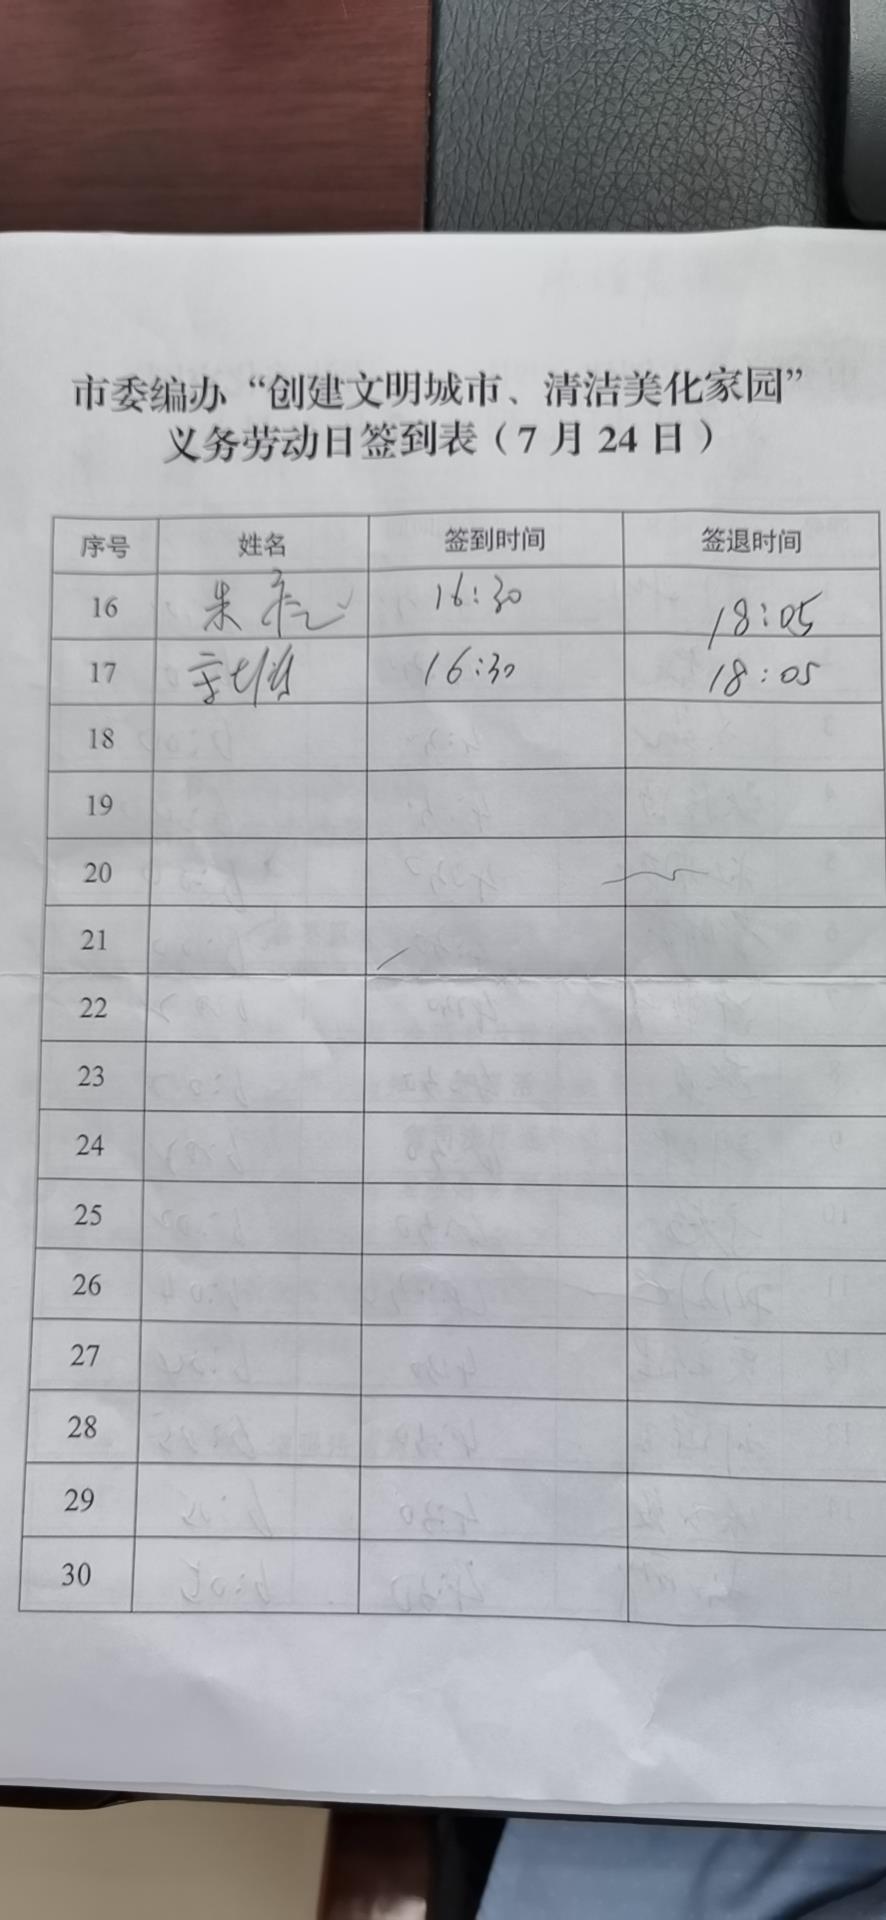 市委编办“创建文明城市、清洁美化家园”
义务劳动日签到表（7月24日）
序号 姓名 签到时间 签退时间
16 朱 16:30 18:05
17 16:30 18:05
18
19
20
21
22
23
24
25
26
27
28
29
30